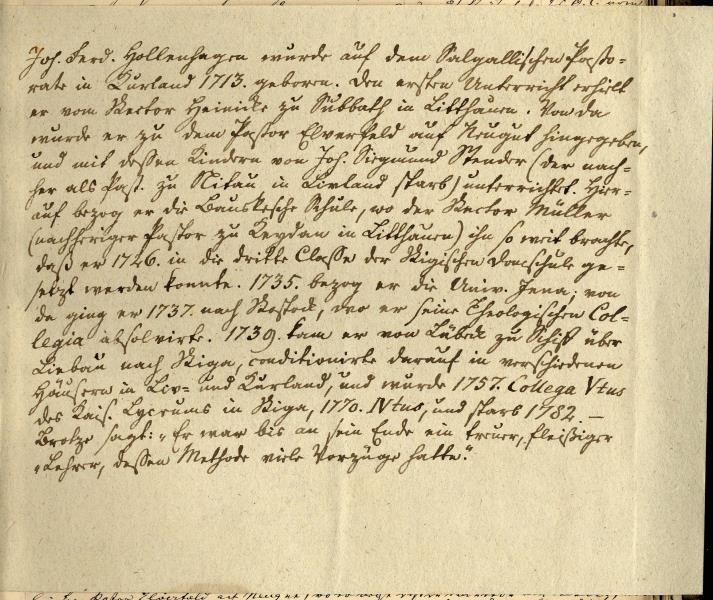 Joh. Ferd. Hollenhagen wurde auf dem Salgallischen Pasto-
rate in Kurland 1713. geboren. Den ersten Unterricht erhielt
er vom Rector Heinicke zu Subbath in Litthauen. Von da
wurde er zu dem Pastor Elverfeld auf Neugut hingegeben,
und mit dessen Kindern von Joh. Siegmund Stender (der nach-
her als Past. zu Nitau in Livland starb) unterrichtet. Hier-
auf bezog er die Bauskesche Schule, wo der Rector Müller
(nachheriger Pastor zu Keydan in Litthauen) ihn so weit brachte,
daß er 1726. in die dritte Classe der Rigischen Domschule ge-
setzt werden konnte. 1735. bezog er die Univ. Jena; von
da ging er 1737. nach Rostock, wo er seine Theologischen Col-
legia absolvirte. 1739. kam er von Lübeck zu Schiff über
Liebau nach Riga, conditionirte darauf in verschiedenen
Häusern in Liv- und Kurland, und wurde 1757. Collega Vtus
des Kais. Lyceums in Riga, 1770. IVtus, und starb 1782. —
Brotze sagt: „Er war bis an sein Ende ein treuer, fleißiger
„Lehrer, dessen Methode viele Vorzüge hatte."